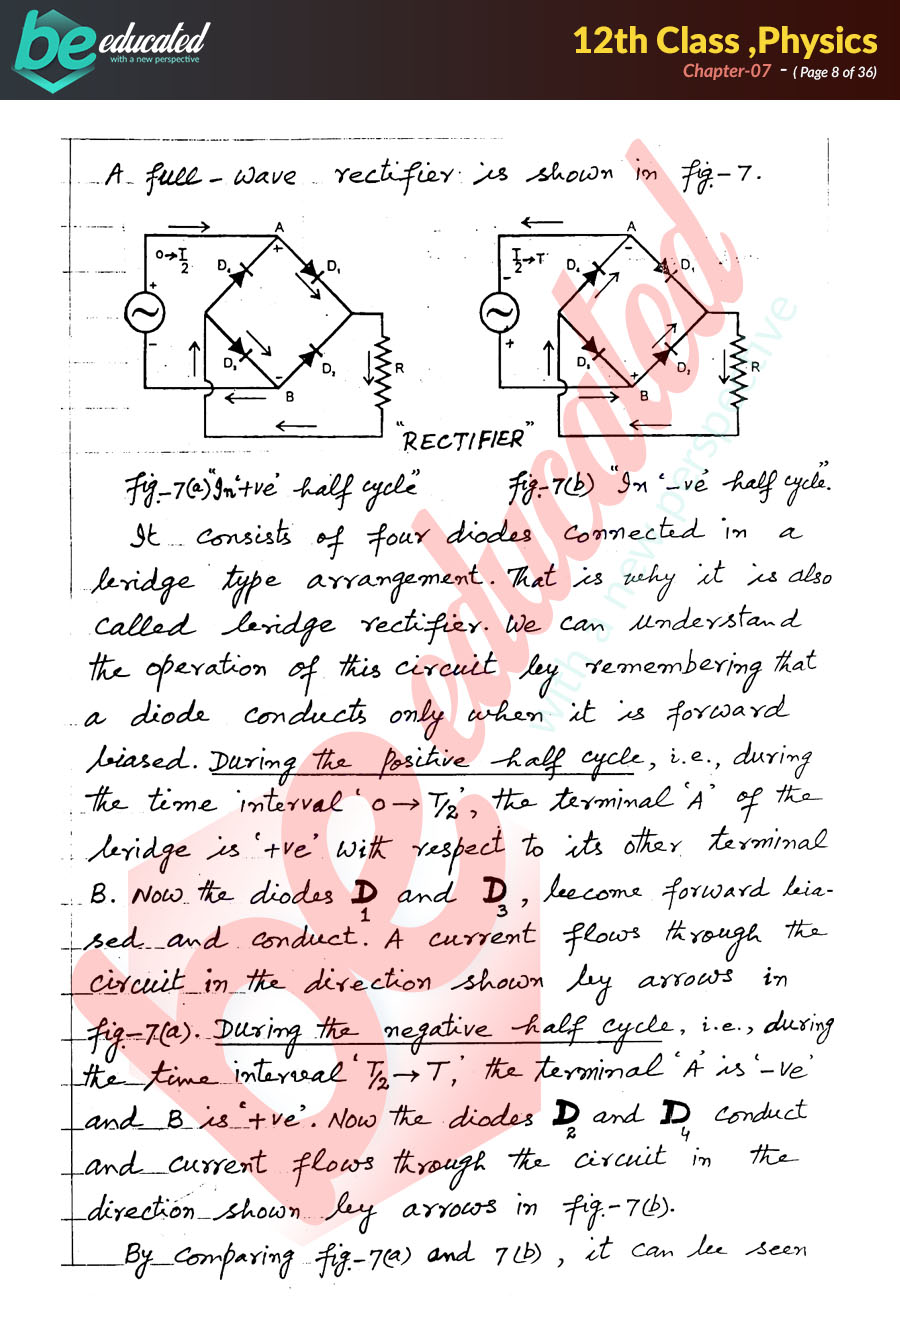 be educated
with a new perspective
12th Class ,Physics
Chapter-07 - ( Page 8 of 36)
A full-wave rectifier is shown in fig-7.
A
0→T/2
D4
D1
+
+
-
D3
D2
-
B
R
A
T/2→T
D4
D1
-
-
+
D3
D2
+
B
R
"RECTIFIER"
fig-7(a) "In '+ve' half cycle"
fig-7(b) "In '-ve' half cycle."
It consists of four diodes connected in a
bridge type arrangement. That is why it is also
called bridge rectifier. We can understand
the operation of this circuit by remembering that
a diode conducts only when it is forward
biased. During the positive half cycle, i.e., during
the time interval '0→T/2', the terminal 'A' of the
bridge is '+ve' with respect to its other terminal
B. Now the diodes D1 and D3, become forward bia-
sed and conduct. A current flows through the
circuit in the direction shown by arrows in
fig-7(a). During the negative half cycle, i.e., during
the time interval 'T/2→T', the terminal 'A' is '-ve'
and B is '+ve'. Now the diodes D2 and D4 conduct
and current flows through the circuit in the
direction shown by arrows in fig-7(b).
By comparing fig-7(a) and 7(b), it can be seen
be educated
with a new perspective